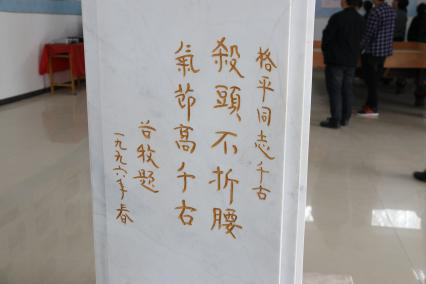 格平同志千古
殺頭不折腰
氣節高千古
谷牧題
一九九六年春